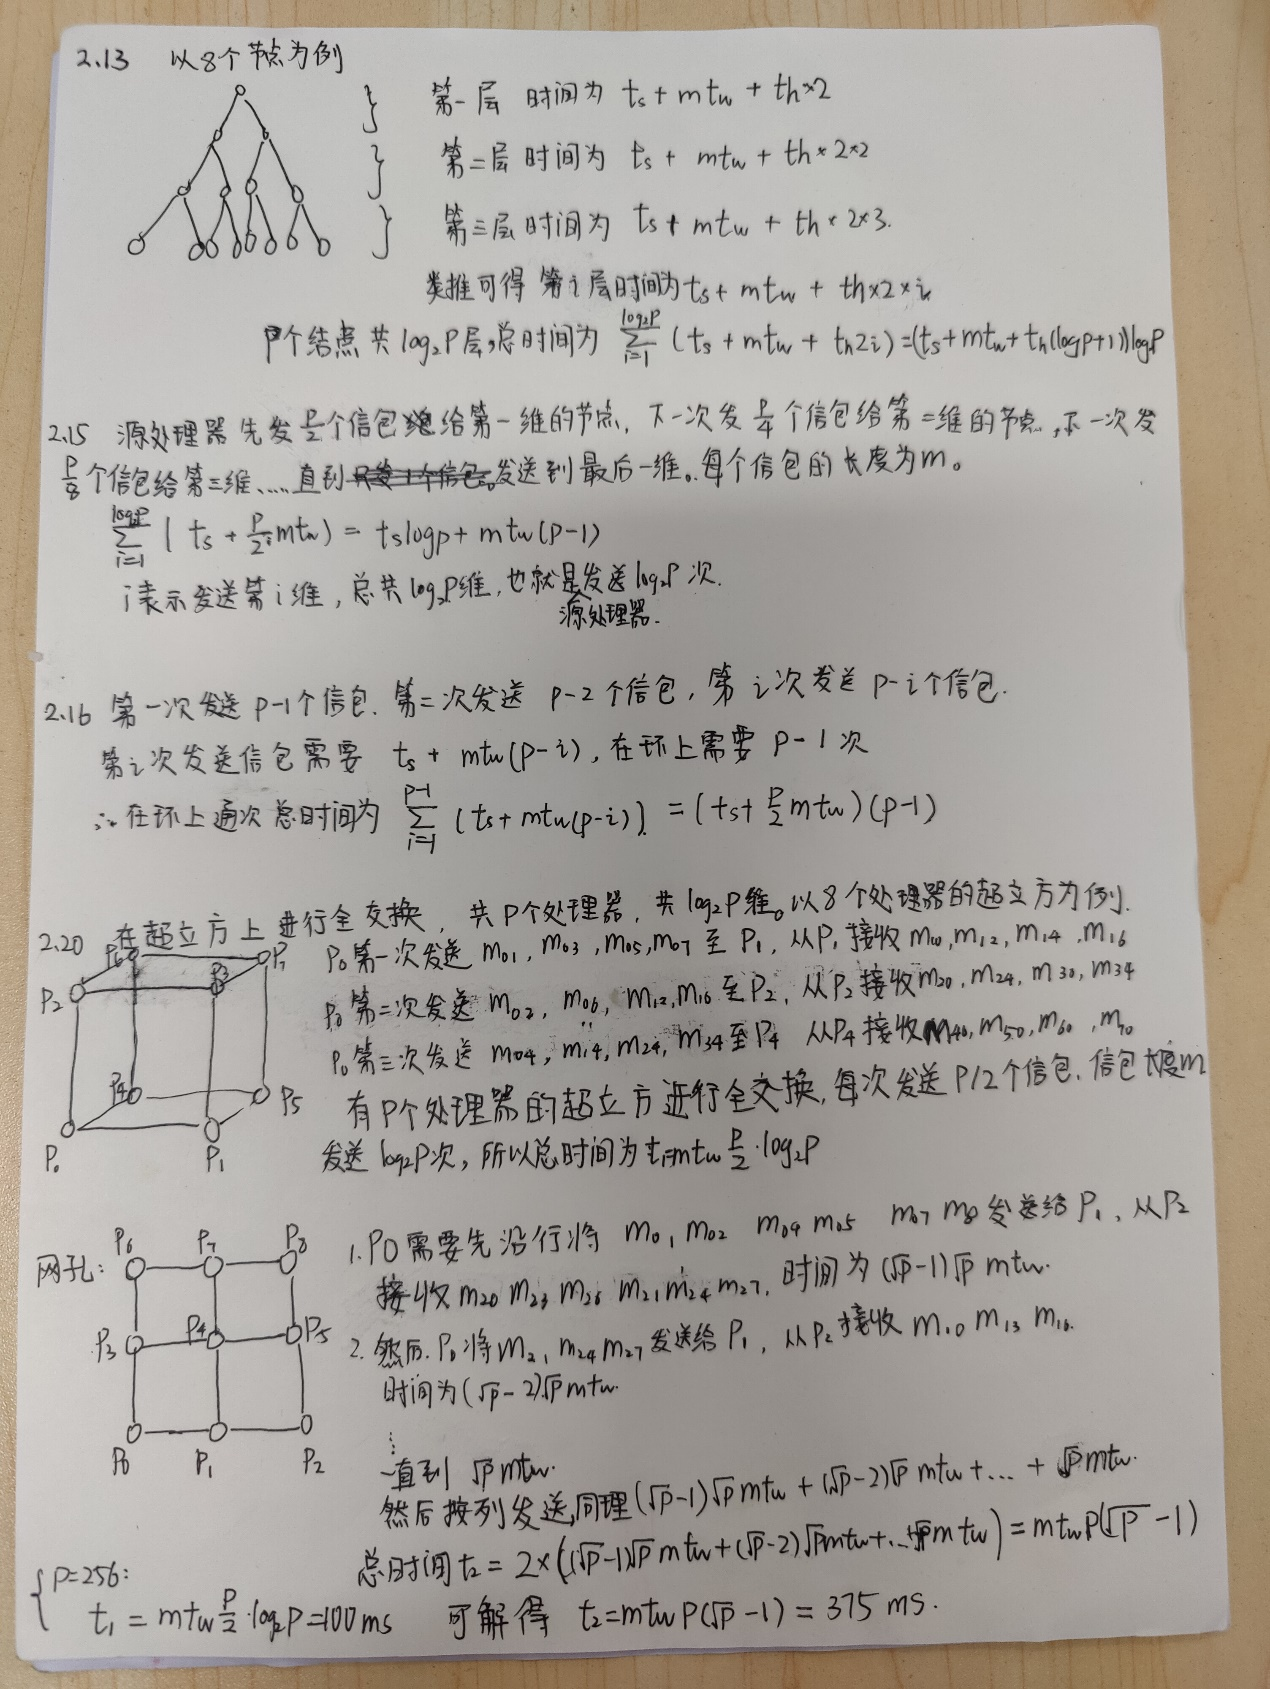 2.13 以8个节点为例
第一层 时间为 ts + mtw + th×2
第二层时间为 ts + mtw + th×2×2
第三层时间为 ts + mtw + th×2×3.
类推可得 第i层时间为ts + mtw + th×2×i
P个结点 共log₂P层,总时间为 ∑_{i=1}^{log₂P} (ts + mtw + th2i) = (ts+mtw+th(logP+1))log₂P
2.15 源处理器先发P/2个信包给第一维的节点, 下一次发P/4个信包给第二维的节点,下一次发
P/8个信包给第三维、....直到发送到最后一维。每个信包的长度为m。
∑_{i=1}^{log₂P} ( ts + P/2ⁱ mtw) = tslogp + mtw(p-1)
i表示发送第i维, 总共log₂P维, 也就是源处理器发送log₂P次.
2.16 第一次发送 p-1个信包. 第二次发送 p-2个信包, 第i次发送 p-i个信包.
第i次发送信包需要 ts + mtw(p-i), 在环上需要 p-1次
∴在环上通次总时间为 ∑_{i=1}^{p-1} (ts + mtw(p-i)) = (ts+P/2 mtw)(p-1)
2.20 在超立方上进行全交换, 共P个处理器, 共log₂P维。以8个处理器的超立方为例.
P6 P7
P2 P3
P4 P5
P0 P1
P0第一次发送 m01, m03, m05, m07 至 P1, 从P1接收m10, m12, m14, m16
P0第二次发送 m02, m06, m12, m16 至P2, 从P2接收m20, m24, m30, m34
P0第三次发送 m04, m14, m24, m34至P4 从P4接收m40, m50, m60, m70
有P个处理器的超立方进行全交换, 每次发送P/2个信包. 信包长度m
发送log₂P次, 所以总时间为t1=mtw P/2·log₂P
网孔:
P6 P7 P8
P3 P4 P5
P0 P1 P2
1. P0需要先沿行将 m01 m02 m04 m05 m07 m08发送给P1, 从P2
接收m20 m23 m26 m21 m24 m27, 时间为(√P-1)√P mtw.
2. 然后. P0将m21 m24 m27发送给P1, 从P2接收 m10 m13 m16.
时间为(√P-2)√P mtw.
⋮
一直到 √P mtw.
然后按列发送,同理(√P-1)√P mtw + (√P-2)√P mtw + ... + √P mtw.
总时间t2 = 2×((√P-1)√P mtw + (√P-2)√P mtw + ... + √P mtw) = mtw P(√P-1)
{ P=256:
t1 = mtw P/2·log₂P=100ms 可解得 t2=mtw P(√P-1) = 375 ms.